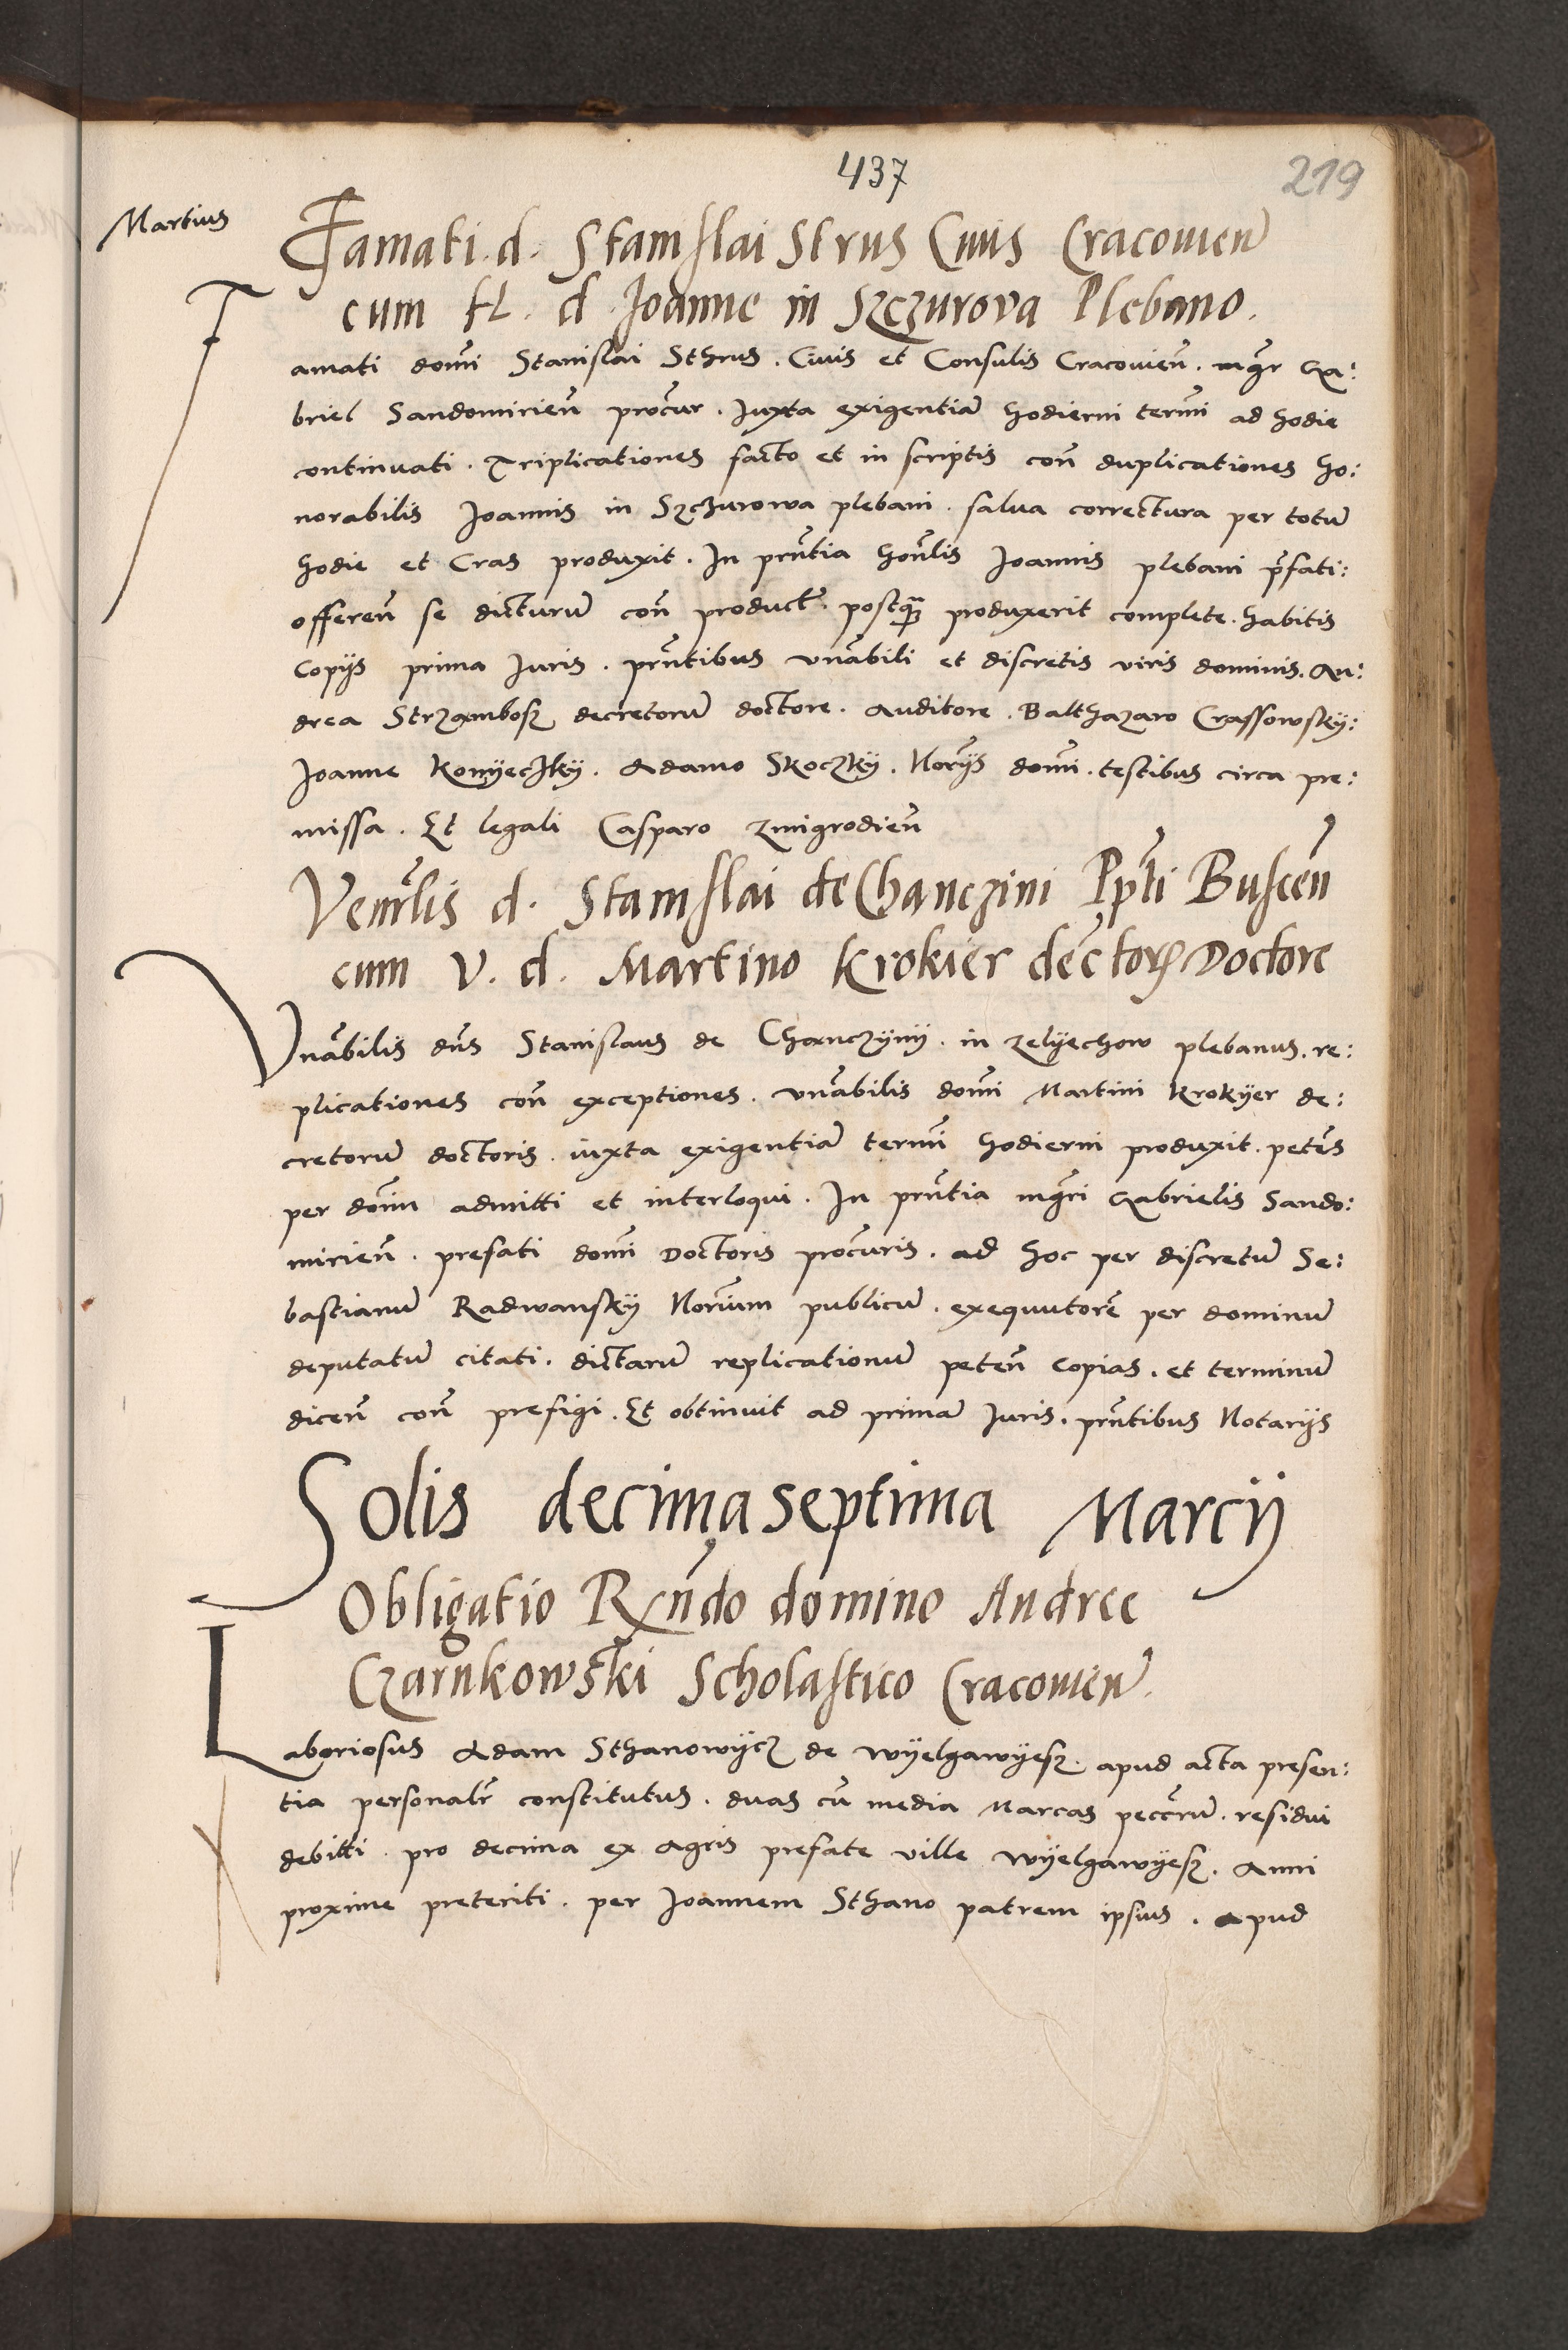 437
219
Martius
Famati. d. Stanislai Strus Civis Cracovien̄
cum H. d. Joanne in Szczurova Plebano.
Famati dom̄i Stanislai Sthrus. Civis et Consulis Cracovien̄. mgr̄ Ga:
briel Sandomirien̄ procur̄. Juxta exigentiā hodierni term̄i ad hodie
continuati. Triplicationes facto et in scriptis con̄ duplicationes ho:
norabilis Joannis in Szczurowa plebani. salva correctura per totū
hodie et Cras produxit. In prn̄tia hon̄lis Joannis plebani p̄fati:
offeren̄ se dicturū con̄ product̄. postq̄ȝ produxerit complete. habitis
Copijs prima Juris. prn̄tibus vn̄abili et discretis viris dominis. An:
drea Strzambosz decretorū doctore. Auditore. Balthazaro Crassowskÿ:
Joanne Konÿeczkÿ. Adamo Skoczkÿ. Nor̄ijs dom̄i. testibus circa pre:
missa. Et legali Casparo zmigrodien̄
Venr̄lis d. Stanislai de Chanczini Pp̄ti Buscen̄
cum V. d. Martino Krokier dec̄torꝝ Doctore
Vn̄abilis dn̄s Stanislaus de Chanczÿnÿ. in zelÿechow plebanus. re:
plicationes con̄ exceptiones. vn̄abilis dom̄i Martini Krokÿer de:
cretorū doctoris. iuxta exigentiā term̄i hodierni produxit. petēs
per dom̄ admitti et interloqui. In prn̄tia mgr̄i Gabrielis Sando:
mirien̄. prefati dom̄i Doctoris procur̄is. ad hoc per discretū Se:
bastianū Radwanskÿ Nor̄ium publicū. exequutorē per dominū
deputatū citati. dictarū replicationū peten̄ copias. et terminū
dicen̄ con̄ prefigi. Et obtinuit ad primā Juris. prn̄tibus Notarijs
Solis decimaseptima Marcij
Obligatio Rn̄do domino Andree
Czarnkowski Scholastico Cracovien̄.
Laboriosus Adam Sthanowÿcz de wÿelgawÿesz. apud acta presen:
tia personalr̄ constitutus. duas cū media Marcas pecc̄rū. residui
debitti. pro decima ex Agris prefate ville wÿelgawÿesz. Anni
proxime preteriti. per Joannem Sthano patrem ipsius. apud